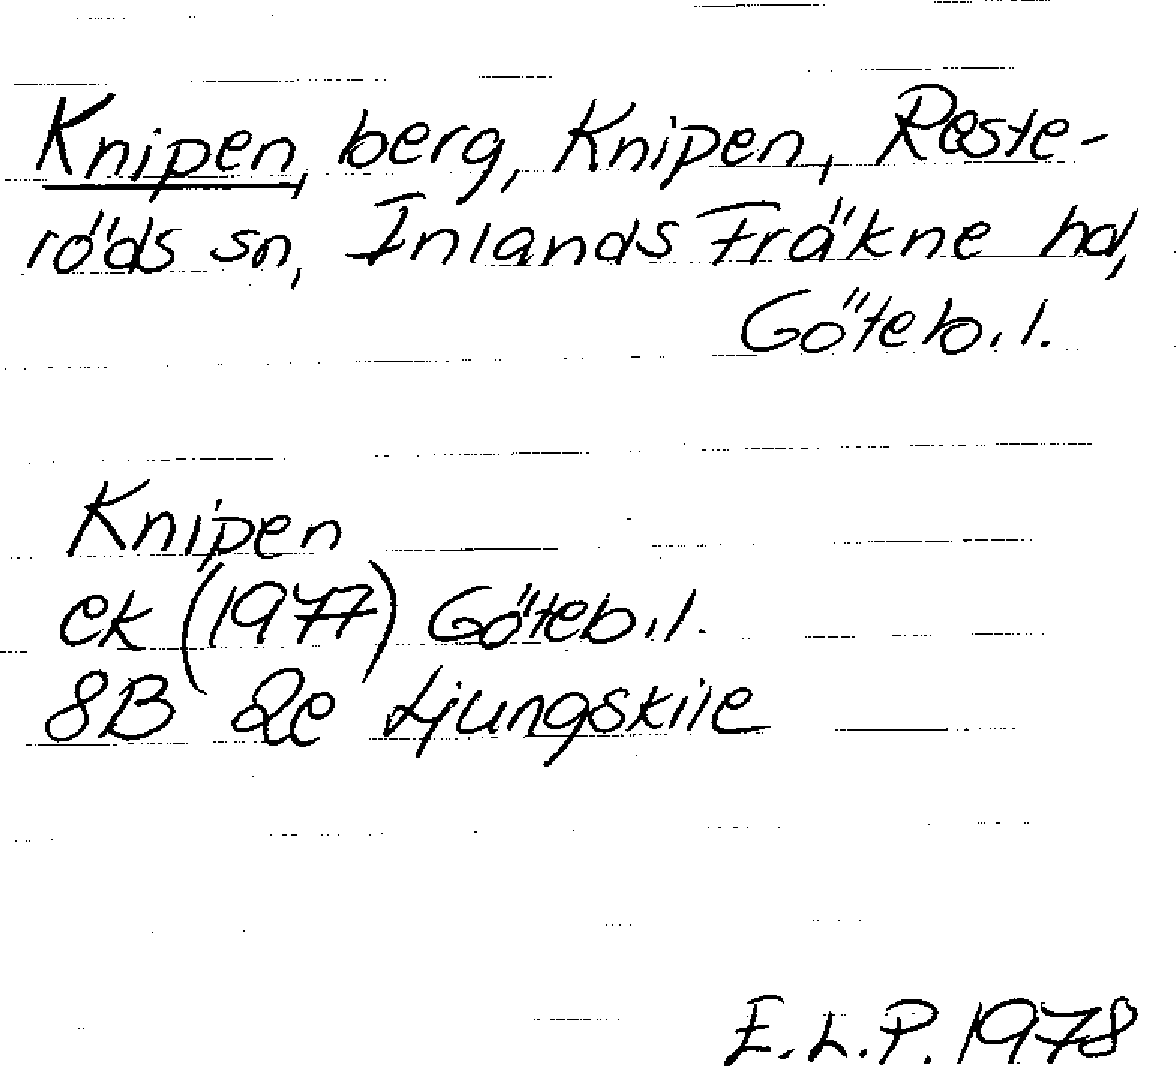 Knipen, berg, Knipen, Reste-
röds sn, Inlands Fräkne hd,
Göteb.l.
Knipen
ek (1977) Göteb.l.
8B 2e Ljungskile
E.L.P. 1978